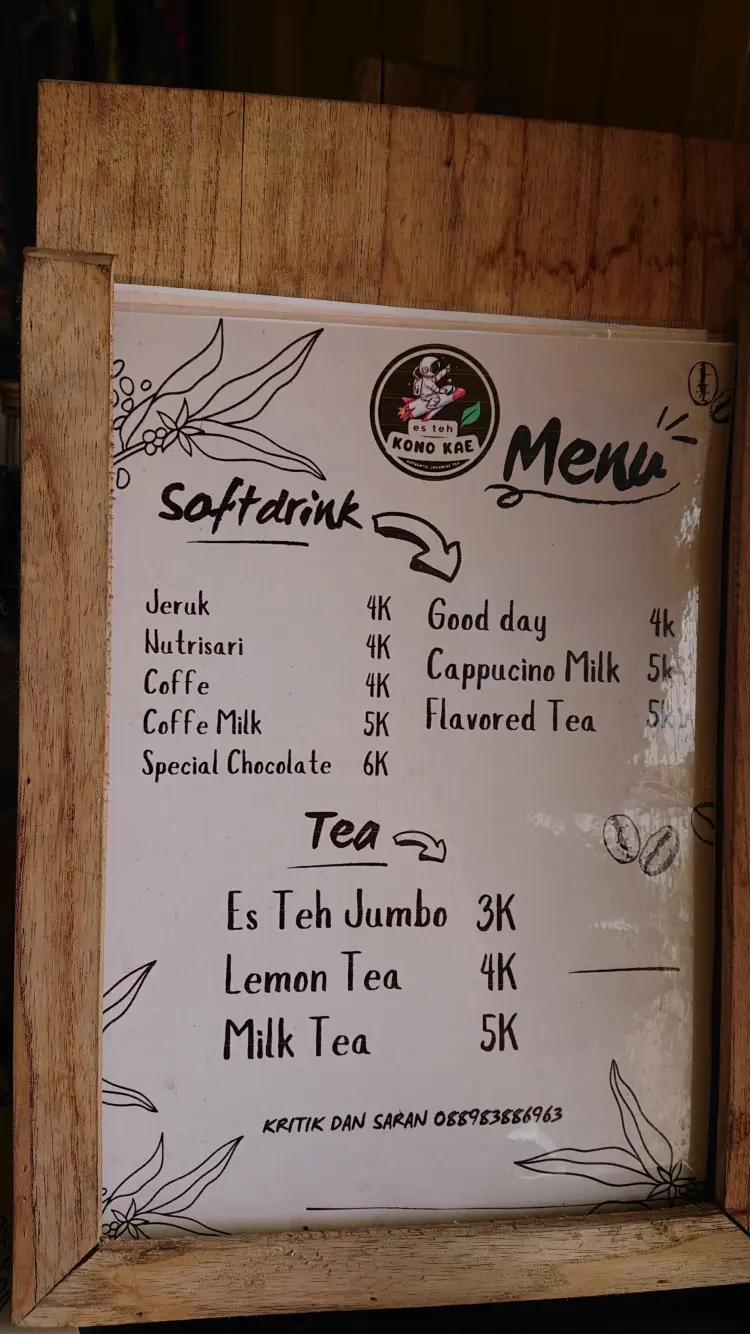 es teh
KONO KAE
Menu
Softdrink
Jeruk 4K
Nutrisari 4K
Coffe 4K
Coffe Milk 5K
Special Chocolate 6K
Good day 4k
Cappucino Milk 5k
Flavored Tea 5k
Tea
Es Teh Jumbo 3K
Lemon Tea 4K
Milk Tea 5K
KRITIK DAN SARAN 088983886963